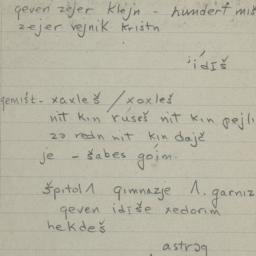 geven zejer klejn - hundert miš
zejer vejnik kristn
'idiš
gemišt - xaxleš / xoxleš
nit kin ruseš nit kin pejli
zə redn nit kin dajč
je - šabes gojm.
špitol 1 gimnazje 1. garniz
geven idiše xedorim
hekdeš
astrəg